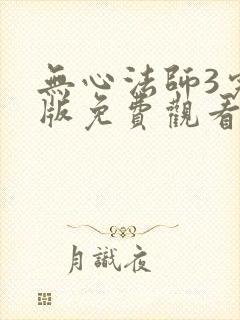 無心法師3
版免費觀看
月識夜